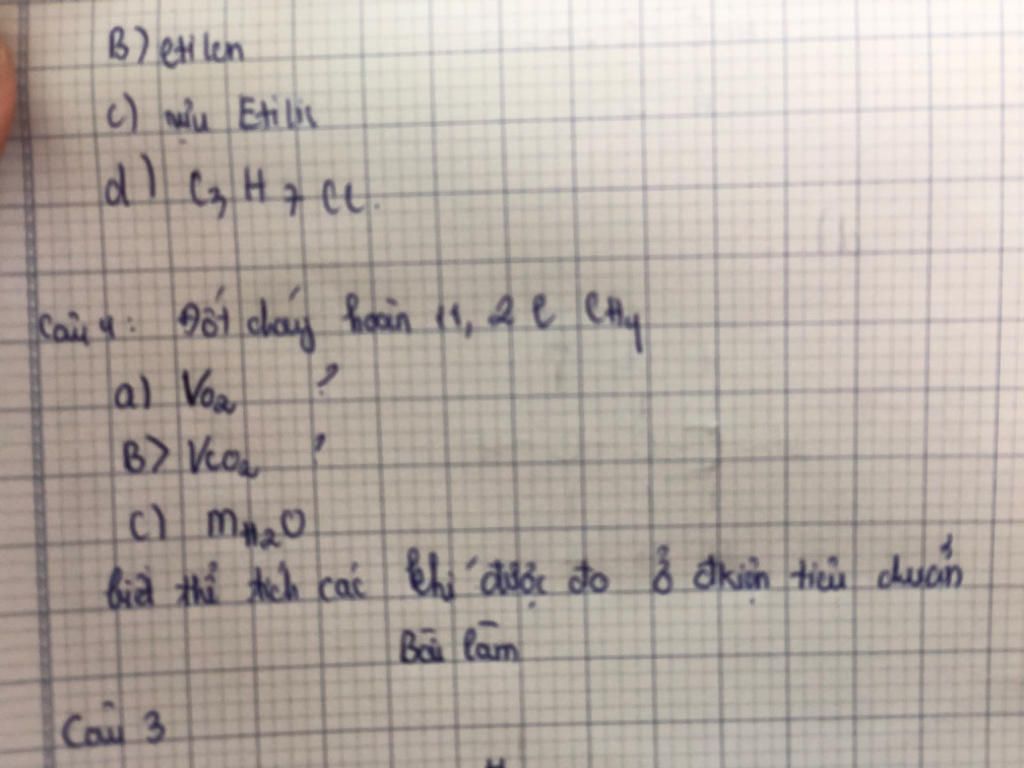 B) etilen
C) rượu Etilic
d) C3H7Cl.
Câu 4: Đốt cháy hoàn 11,2 l CH4
a) VO2 ?
B> VCO2 ?
C) mH2O
biết thể tích các khí được đo ở đkiện tiêu chuẩn
Bài làm
Câu 3